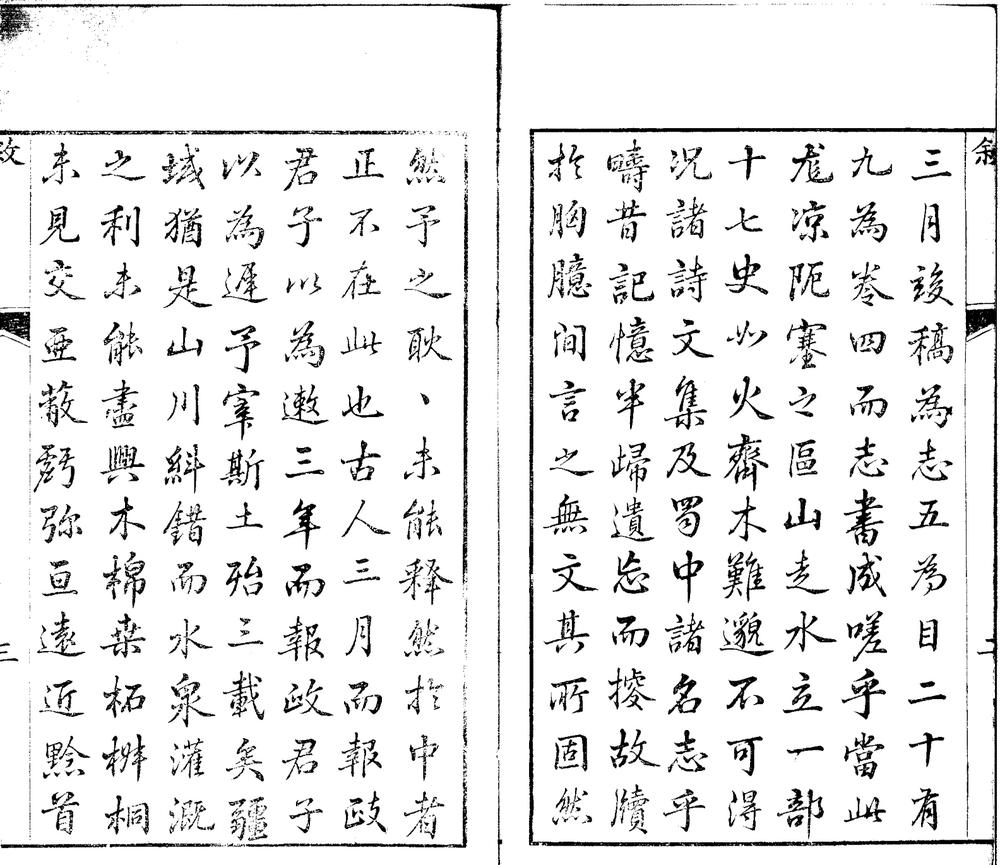 三月竣稿為志五為目二十有
九為卷四而志書成嗟乎當此
尨凉阨塞之區山走水立一部
十七史如火齊木難邈不可得
况諸詩文集及蜀中諸名志乎
疇昔記憶半歸遺忘而搜故牘
於胸臆间言之無文其所固然
然予之耿丶未能釋然於中者
正不在此也古人三月而報政
君子以為遬三年而報政君子
以為遲予宰斯土殆三載矣疆
域猶是山川糾錯而水泉灌溉
之利未能盡興木棉桒柘椕桐
未見交亜蔽虧弥亘遠近黔首